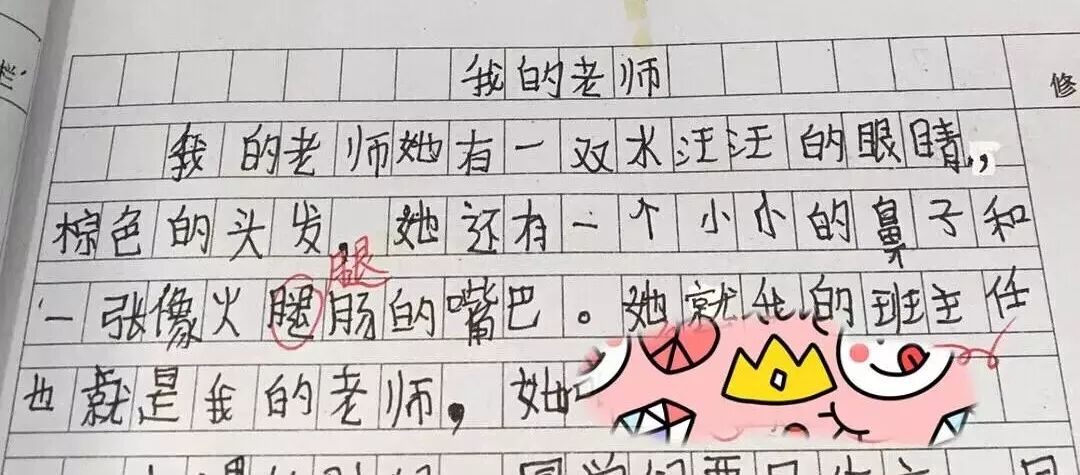 我的老师
修
我的老师她有一双水汪汪的眼睛,
棕色的头发,她还有一个小小的鼻子和
腿
一张像火腿肠的嘴巴。她就我的班主任
也就是我的老师,她